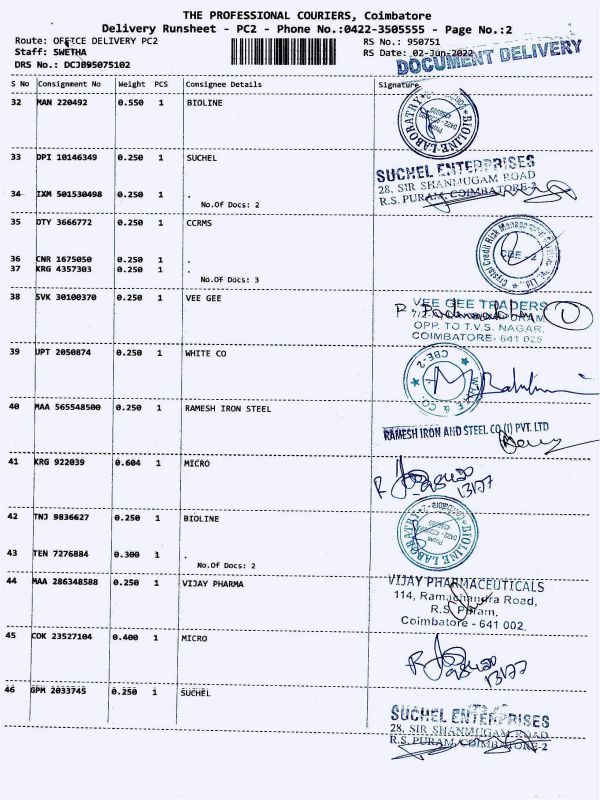 THE PROFESSIONAL COURIERS, Coimbatore
Delivery Runsheet - PC2 - Phone No.:0422-3505555 - Page No.:2
Route: OFFICE DELIVERY PC2 RS No.: 950751
Staff: SWETHA RS Date: 02-Jun-2022
DRS No.: DCJB95075102
DOCUMENT DELIVERY
S No Consignment No Weight PCS Consignee Details Signature
32 MAN 220492 0.550 1 BIOLINE
BIOLINE LABORATRY
33 DPI 10146349 0.250 1 SUCHEL
SUCHEL ENTERPRISES
28, SIR SHANMUGAM ROAD
R.S. PURAM, COIMBATORE-2
34 IXM 501530498 0.250 1 .
No.Of Docs: 2
35 DTY 3666772 0.250 1 CCRMS
Crystal Credit Risk Management
CBE - 2
36 CNR 1675050 0.250 1 .
37 KRG 4357303 0.250 1 .
No.Of Docs: 3
38 SVK 30100370 0.250 1 VEE GEE
VEE GEE TRADERS
OPP. TO T.V.S. NAGAR,
COIMBATORE- 641 025
39 UPT 2050874 0.250 1 WHITE CO
CBE-2
40 MAA 565548500 0.250 1 RAMESH IRON STEEL
RAMESH IRON AND STEEL CO (I) PVT. LTD
41 KRG 922039 0.604 1 MICRO
42 TNJ 9836627 0.250 1 BIOLINE
BIOLINE LABORATRY
43 TEN 7276884 0.300 1 .
No.Of Docs: 2
44 MAA 286348588 0.250 1 VIJAY PHARMA
VIJAY PHARMACEUTICALS
114, Ramachandra Road,
R.S. Puram,
Coimbatore - 641 002.
45 COK 23527104 0.400 1 MICRO
46 GPM 2033745 0.250 1 SUCHEL
SUCHEL ENTERPRISES
28, SIR SHANMUGAM ROAD
R.S. PURAM, COIMBATORE-2